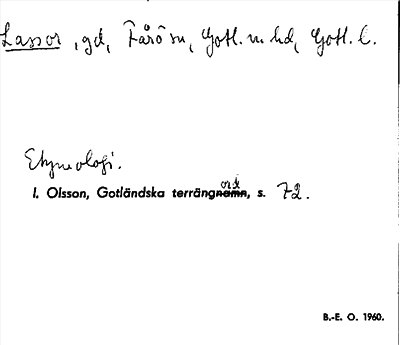 Lassor, gd, Fårö sn, Gotl. n. hd, Gotl. l.
Etymologi.
ord
I. Olsson, Gotländska terrängnamn, s. 72.
B.-E. O. 1960.